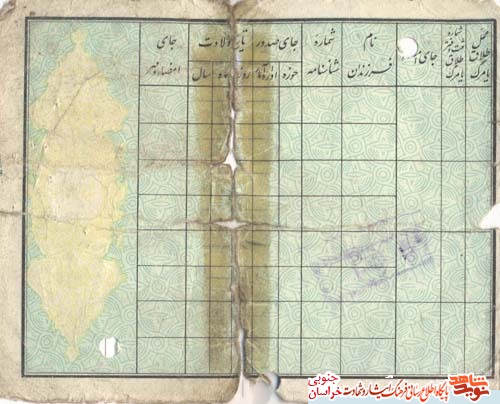 محل طلاق یا مرگ
شماره ثبت دفتر طلاق یا مرگ
جای
نام فرزندان
شماره شناسنامه
جای صدور
حوزه
اداره
تاریخ ولادت
روز
ماه
سال
جای امضاء و مهر
پایگاه اطلاع رسانی فرهنگ ایثار و شهادت خراسان جنوبی
نوید شاهد